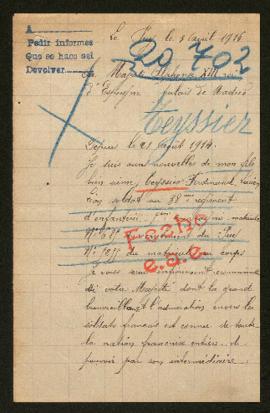 A
Pedir informes
Que se hace sei
Devolver
Le Puy le 8 août 1916
20,702
Sa Majesté Alphonse XIII roi
d'Espagne palais de Madrid
Teyssier
Depuis le 21 août 1914.
Je suis sans nouvelles de mon fils
bien aimé, Teyssier Ferdinand,
soldat au 38me régiment
d'infanterie, matricule
recrutement du Puy
Fecho
e.a.e.
matricule au corps
je vous serai infiniment reconnaissant
si votre Majesté dont la grande
bienveillance envers les
soldats français est connue de toute
la nation française entière
pouvait par son intermédiaire